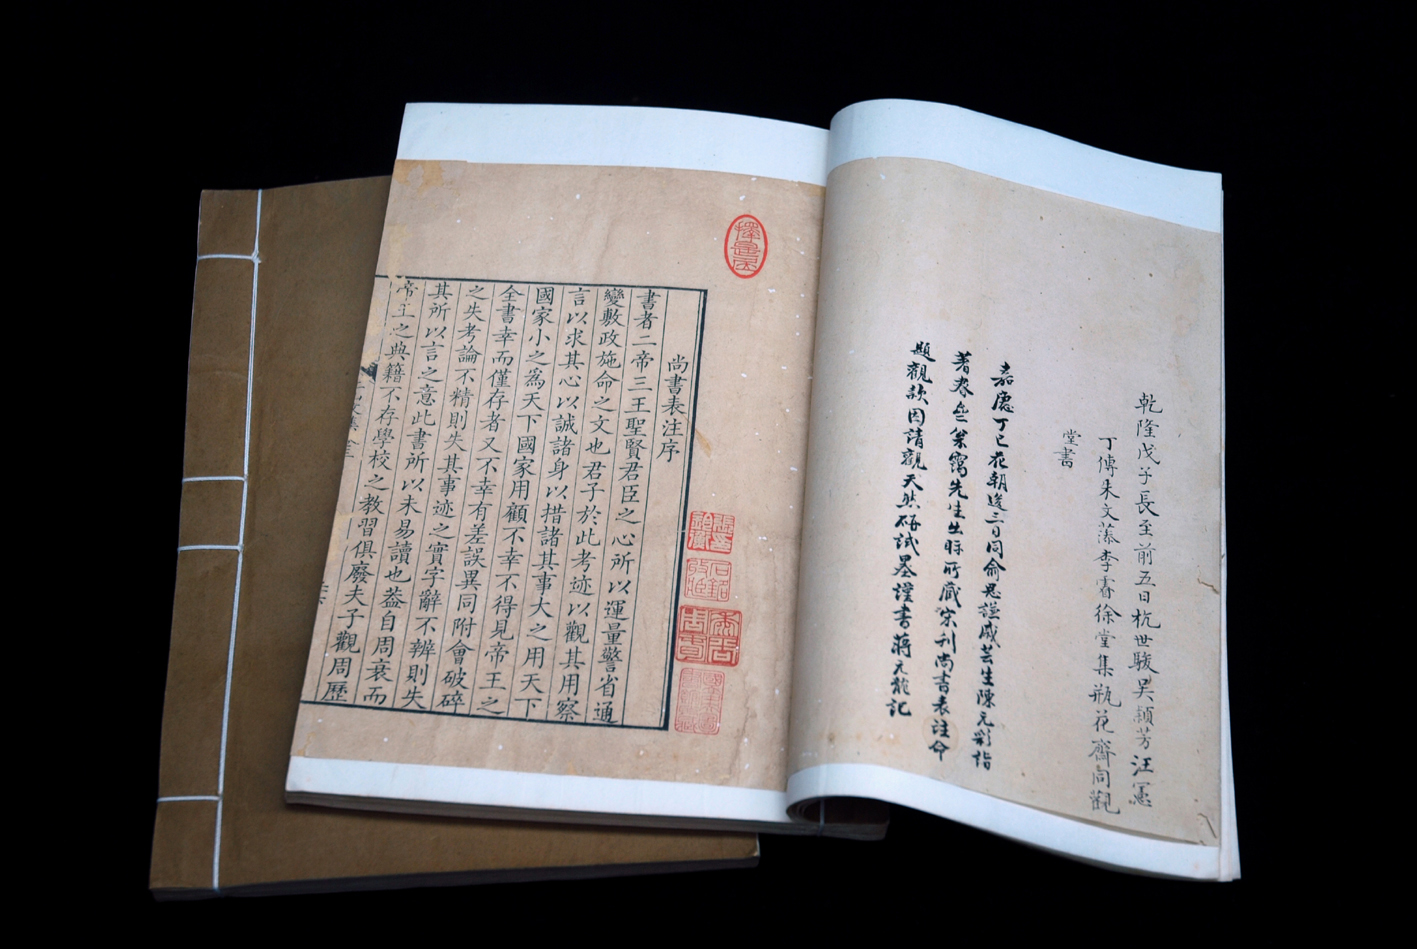 乾隆戊子長至前五日杭世駿吳穎芳汪憲
丁傳朱文藻李睿徐堂集瓶花齋同觀
堂書
嘉慶丁巳花朝後三日同俞思謙戚芸生陳元彩詣
著春書屋
先生出眎所藏宋刊尚書表注命
題觀款因請觀天然硯試墨謹書蔣元龍記
擇是居
尚書表注序
書者二帝三王聖賢君臣之心所以運量警省通
變敷政施命之文也君子於此考迹以觀其用察
言以求其心以誠諸身以措諸其事大之用天下
國家小之為天下國家用顧不幸不得見帝王之
全書幸而僅存者又不幸有差誤異同附會破碎
之失考論不精則失其事迹之實字辭不辨則失
其所以言之意此書所以未易讀也蓋自周衰而
帝王之典籍不存學校之教習俱廢夫子觀周歷